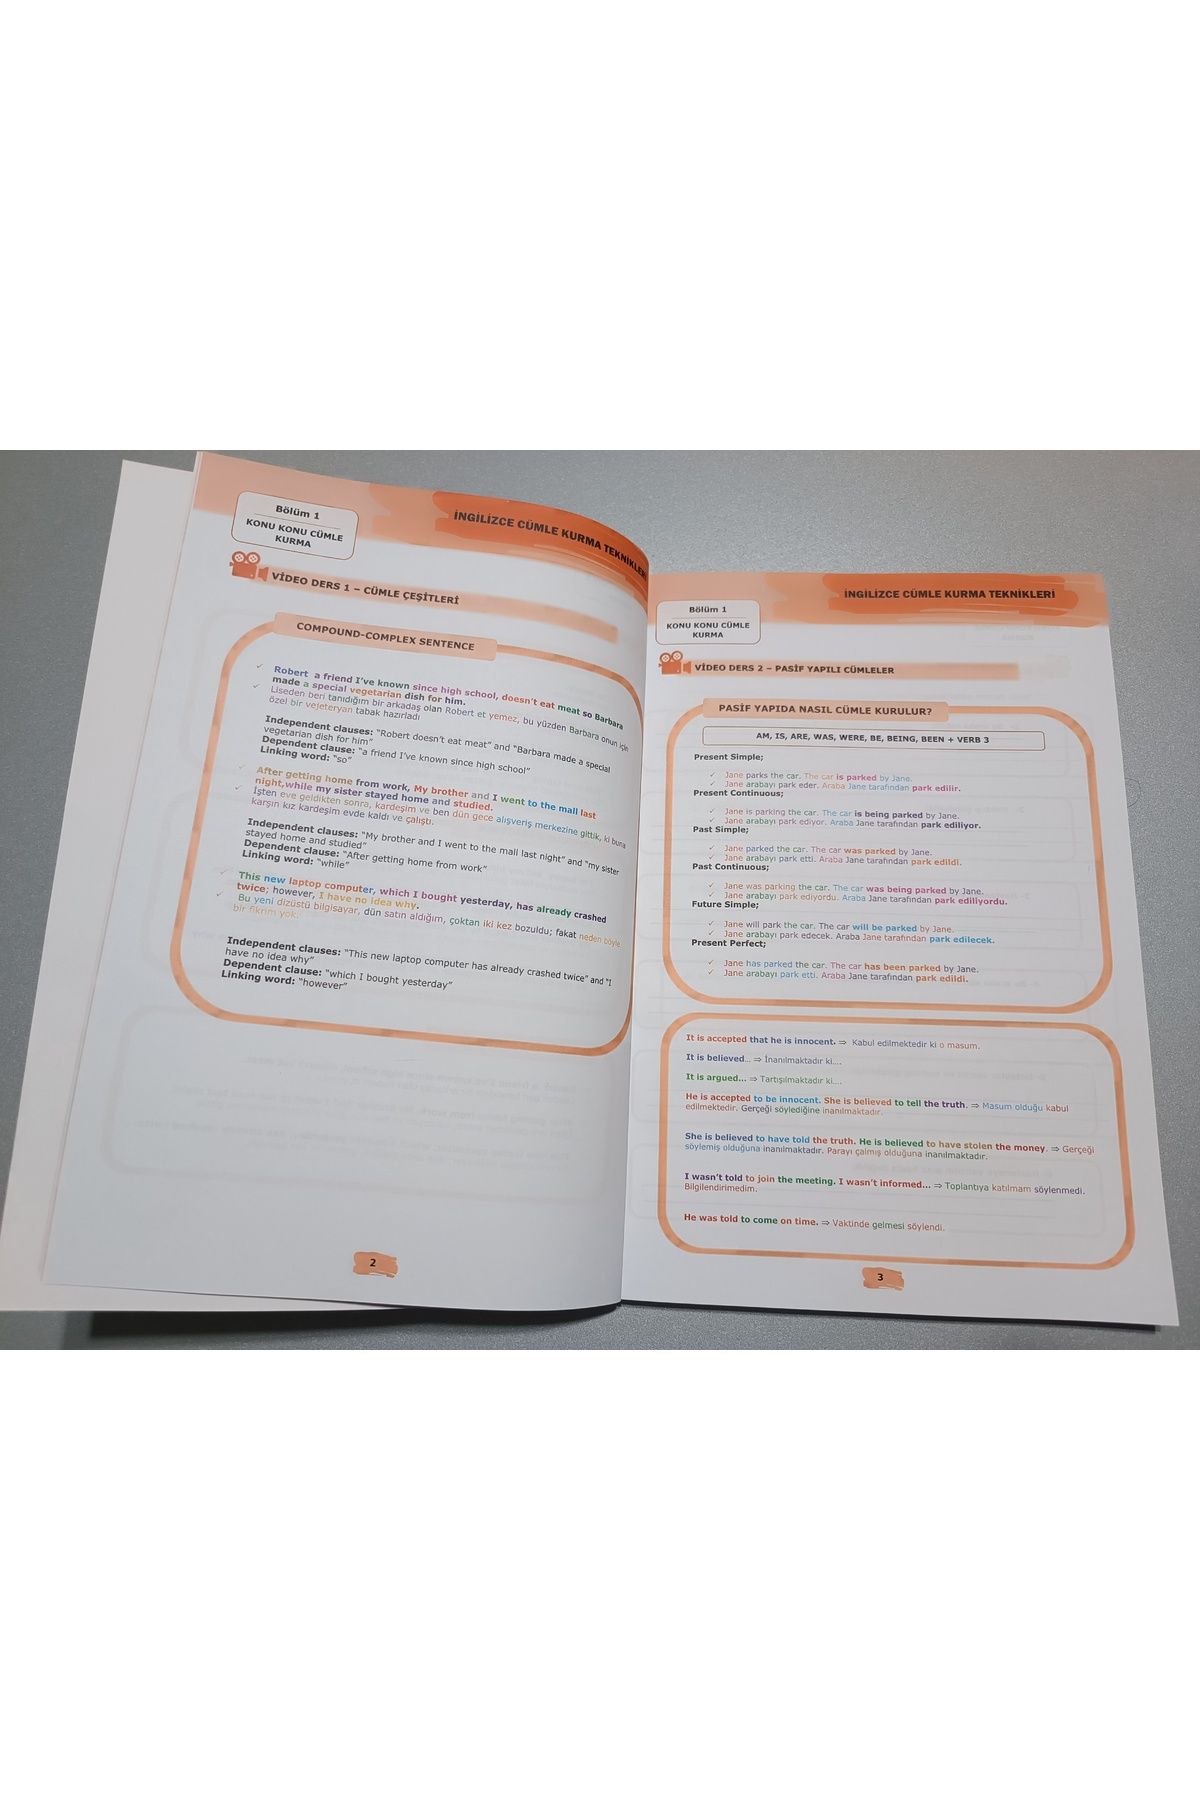 Bölüm 1
KONU KONU CÜMLE
KURMA
İNGİLİZCE CÜMLE KURMA TEKNİKLERİ
VİDEO DERS 1 – CÜMLE ÇEŞİTLERİ
COMPOUND-COMPLEX SENTENCE
✓ Robert a friend I've known since high school, doesn't eat meat so Barbara
made a special vegetarian dish for him.
✓ Liseden beri tanıdığım bir arkadaş olan Robert et yemez, bu yüzden Barbara onun için
özel bir vejeteryan tabak hazırladı
Independent clauses: "Robert doesn't eat meat" and "Barbara made a special
vegetarian dish for him"
Dependent clause: "a friend I've known since high school"
Linking word: "so"
✓ After getting home from work, My brother and I went to the mall last
night,while my sister stayed home and studied.
✓ İşten eve geldikten sonra, kardeşim ve ben dün gece alışveriş merkezine gittik, ki buna
karşın kız kardeşim evde kaldı ve çalıştı.
Independent clauses: "My brother and I went to the mall last night" and "my sister
stayed home and studied"
Dependent clause: "After getting home from work"
Linking word: "while"
✓ This new laptop computer, which I bought yesterday, has already crashed
twice; however, I have no idea why.
✓ Bu yeni dizüstü bilgisayar, dün satın aldığım, çoktan iki kez bozuldu; fakat neden böyle
bir fikrim yok.
Independent clauses: "This new laptop computer has already crashed twice" and "I
have no idea why"
Dependent clause: "which I bought yesterday"
Linking word: "however"
2
İNGİLİZCE CÜMLE KURMA TEKNİKLERİ
Bölüm 1
KONU KONU CÜMLE
KURMA
VİDEO DERS 2 – PASİF YAPILI CÜMLELER
PASİF YAPIDA NASIL CÜMLE KURULUR?
AM, IS, ARE, WAS, WERE, BE, BEING, BEEN + VERB 3
Present Simple;
✓ Jane parks the car. The car is parked by Jane.
✓ Jane arabayı park eder. Araba Jane tarafından park edilir.
Present Continuous;
✓ Jane is parking the car. The car is being parked by Jane.
✓ Jane arabayı park ediyor. Araba Jane tarafından park ediliyor.
Past Simple;
✓ Jane parked the car. The car was parked by Jane.
✓ Jane arabayı park etti. Araba Jane tarafından park edildi.
Past Continuous;
✓ Jane was parking the car. The car was being parked by Jane.
✓ Jane arabayı park ediyordu. Araba Jane tarafından park ediliyordu.
Future Simple;
✓ Jane will park the car. The car will be parked by Jane.
✓ Jane arabayı park edecek. Araba Jane tarafından park edilecek.
Present Perfect;
✓ Jane has parked the car. The car has been parked by Jane.
✓ Jane arabayı park etti. Araba Jane tarafından park edildi.
It is accepted that he is innocent. ⇒ Kabul edilmektedir ki o masum.
It is believed... ⇒ İnanılmaktadır ki....
It is argued... ⇒ Tartışılmaktadır ki....
He is accepted to be innocent. She is believed to tell the truth. ⇒ Masum olduğu kabul
edilmektedir. Gerçeği söylediğine inanılmaktadır.
She is believed to have told the truth. He is believed to have stolen the money. ⇒ Gerçeği
söylemiş olduğuna inanılmaktadır. Parayı çalmış olduğuna inanılmaktadır.
I wasn't told to join the meeting. I wasn't informed... ⇒ Toplantıya katılmam söylenmedi.
Bilgilendirimedim.
He was told to come on time. ⇒ Vaktinde gelmesi söylendi.
3